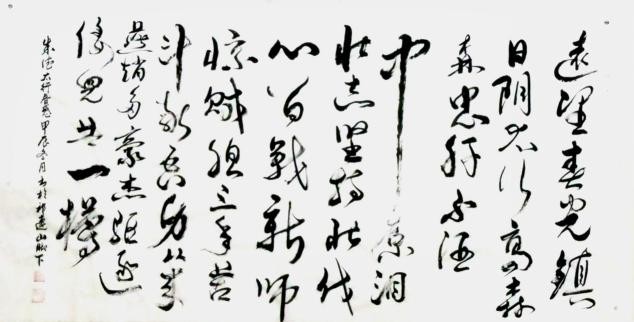 遠望春光鎮
日阴太行高森
森忠肝不洒
中原泪
壮志坚持北伐
心百戰新师
惊贼胆三年苦
斗献吾身从来
燕趙多豪杰驱逐
倭儿共一樽
朱德太行春感 甲辰冬月书於 莲山脚下